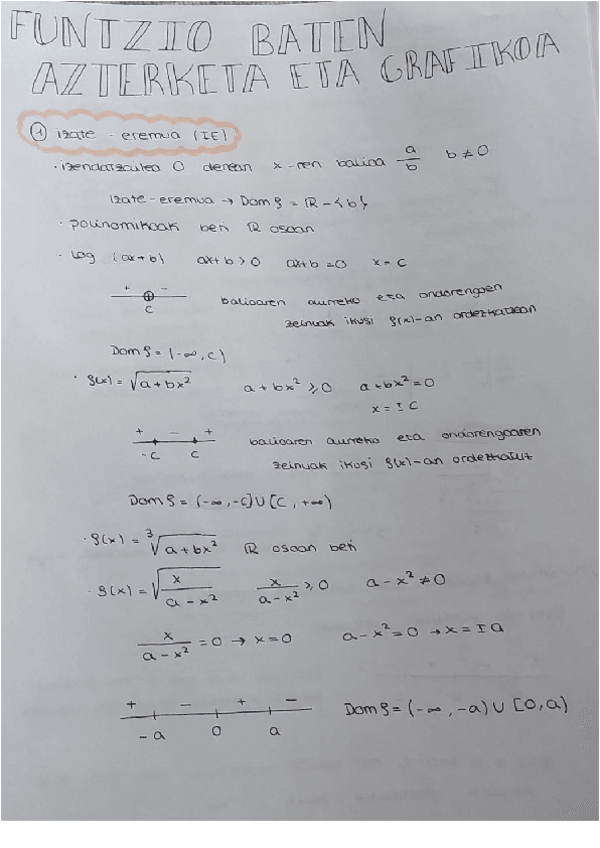 FUNTZIO BATEN
AZTERKETA ETA GRAFIKOA
① izate-eremua (IE)
· izendatzailea 0 denean x-ren balioa a/b b≠0
izate-eremua → Dom f = ℝ-{b}
· polinomikoak beti ℝ osoan
· log (ax+b) ax+b>0 ax+b=0 x=c
+ -
c
balioaren aurreko eta ondorengoen
zeinuak ikusi f(x)-an ordezkatzean
Dom f = (-∞, c)
· f(x) = √(a+bx²) a+bx² ≥ 0 a+bx²=0
x = ± c
+ - +
-c c
balioaren aurreko eta ondorengoaren
zeinuak ikusi f(x)-an ordezkatuz
Dom f = (-∞, -c] ∪ [c, +∞)
· f(x) = ∛(a+bx²) ℝ osoan beti
· f(x) = √(x/(a-x²)) x/(a-x²) ≥ 0 a-x² ≠ 0
x/(a-x²) = 0 → x=0 a-x²=0 → x=±a
+ - + -
-a 0 a
Dom f = (-∞, -a) ∪ [0, a)